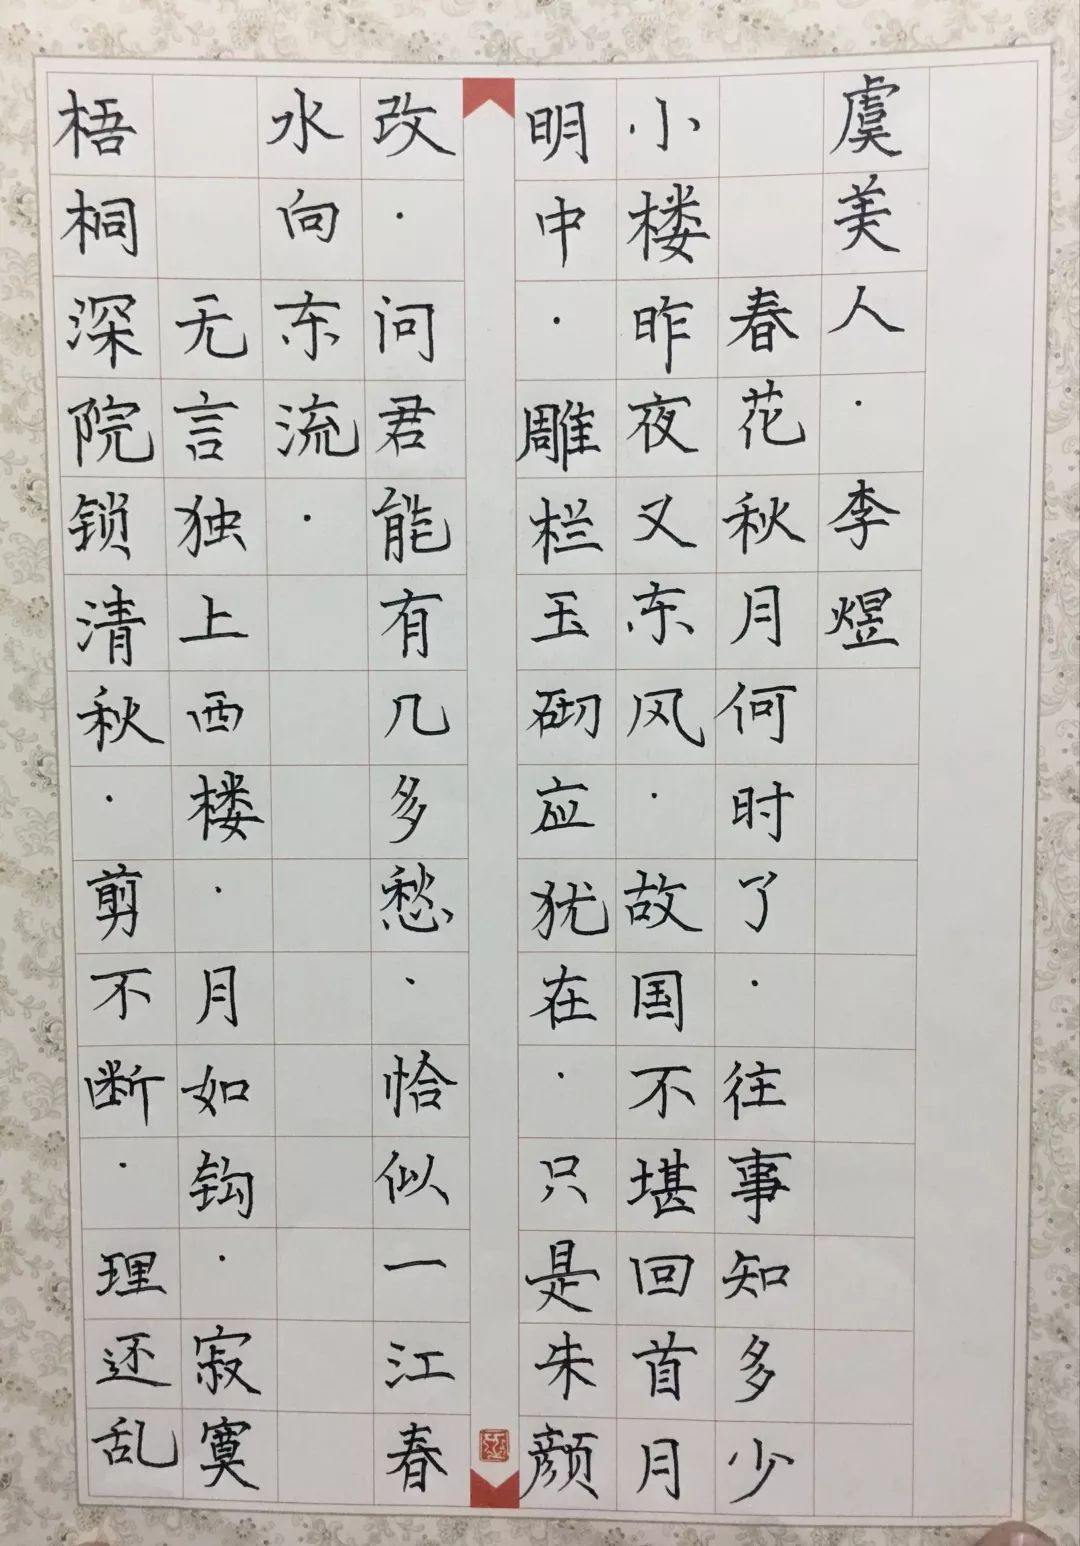 虞美人·李煜
春花秋月何时了·往事知多少
小楼昨夜又东风·故国不堪回首月
明中·雕栏玉砌应犹在·只是朱颜
改·问君能有几多愁·恰似一江春
水向东流·
无言独上西楼·月如钩·寂寞
梧桐深院锁清秋·剪不断·理还乱